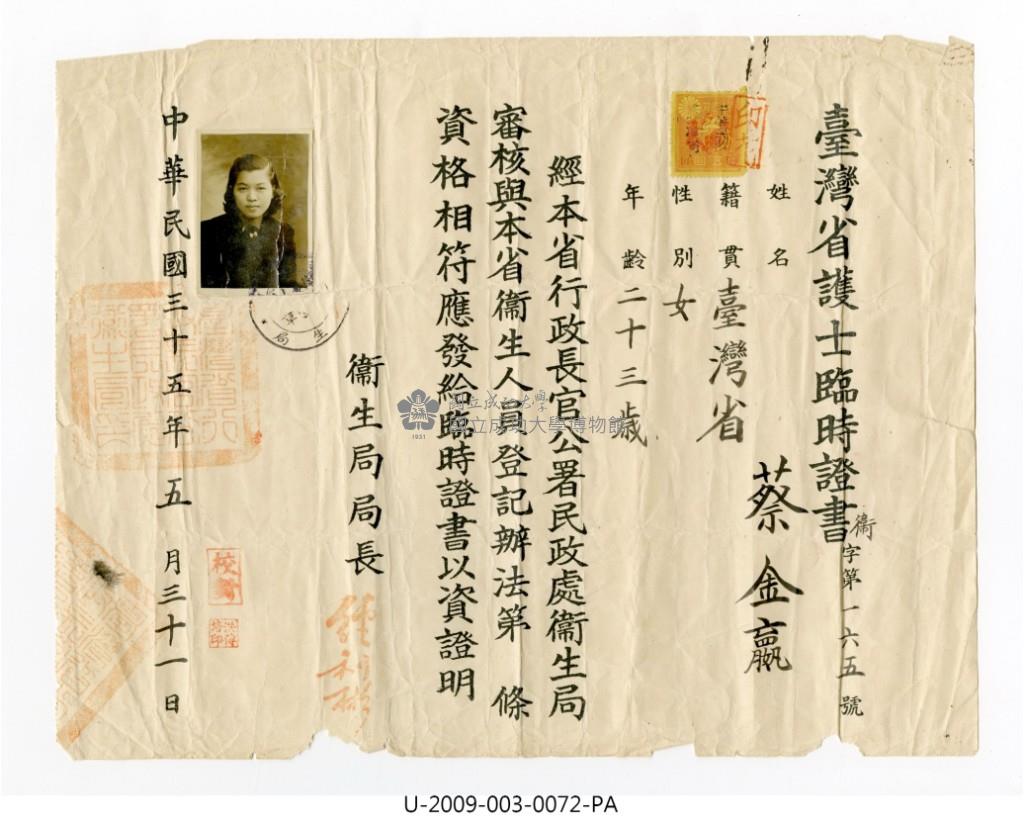 臺灣省護士臨時證書
衞字第一六五號
姓名 蔡金嬴
籍貫 臺灣省
性別 女
年齡 二十三歲
經本省行政長官公署民政處衞生局
審核與本省衞生人員登記辦法第 條
資格相符應發給臨時證書以資證明
衞生局局長
中華民國三十五年五月三十一日
生局
國立成功大學
國立成功大學博物館
1931
U-2009-003-0072-PA